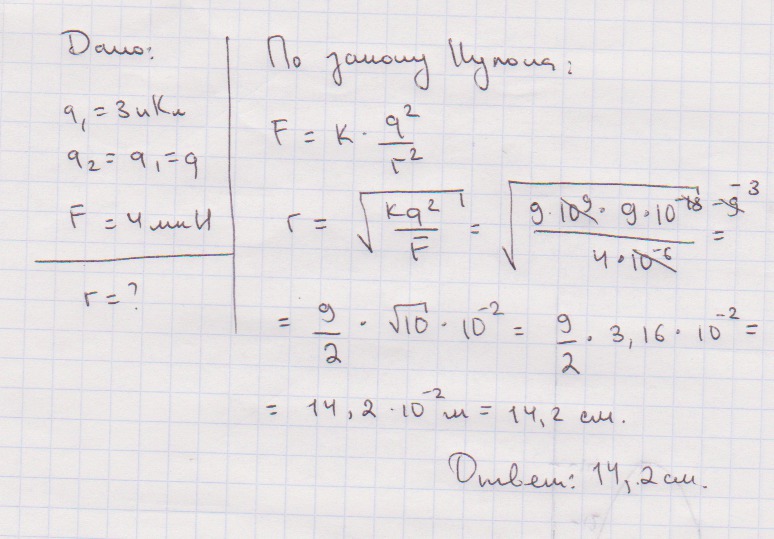 Дано:
q₁ = 3 нКл
q₂ = q₁ = q
F = 4 мкН
r = ?
По закону Кулона:
F = k · q²/r²
r = √(kq²/F) = √(9·10⁹ · 9·10⁻¹⁸ ⁻⁹ ⁻³ / 4·10⁻⁶) =
= 9/2 · √10 · 10⁻² = 9/2 · 3,16 · 10⁻² =
= 14,2 · 10⁻² м = 14,2 см.
Ответ: 14,2 см.